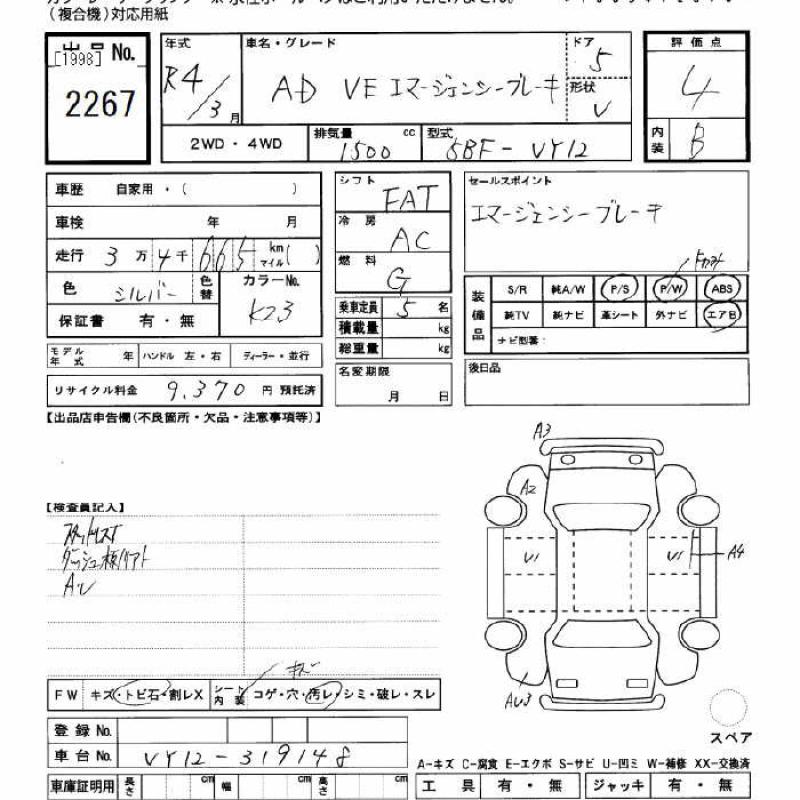 (複合機)対応用紙
出品 No.
[1998]
2267
年式
R4/3月
車名・グレード
AD VE エマージェンシーブレーキ
ドア
5
形状
V
評価点
4
内装
B
2WD・4WD
排気量 1500 cc
型式 5BF-VY12
車歴 自家用・( )
車検 年 月
走行 3万4千665 km マイル( )
色 シルバー 色替
カラーNo. K23
保証書 有・無
モデル年式 年 ハンドル 左・右 ディーラー・並行
リサイクル料金 9,370 円 預託済
シフト FAT
冷房 AC
燃料 G
乗車定員 5 名
積載量 kg
総重量 kg
名変期限
月 日
セールスポイント
エマージェンシーブレーキ
装備品
S/R 純A/W P/S P/W ABS
純TV 純ナビ 革シート 外ナビ エアB
ナビ型番:
後日品
【出品店申告欄(不良箇所・欠品・注意事項等)】
【検査員記入】
AU
A3
A2
U1
U1
A4
AU3
スペア
FW キズ・トビ石・割レX
シート内装 コゲ・穴・汚レ・シミ・破レ・スレ
キズ
登録 No.
車台 No. VY12-319148
車庫証明用 長さ cm 幅 cm 高さ cm
A-キズ C-腐食 E-エクボ S-サビ U-凹ミ W-補修 XX-交換済
工具 有・無 ジャッキ 有・無